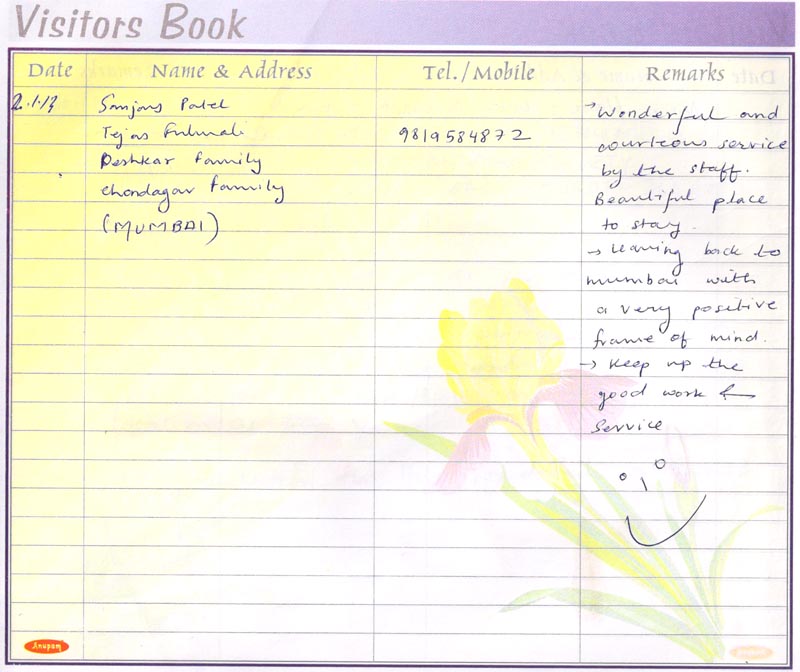 Visitors Book
Date Name & Address Tel./Mobile Remarks
2.1.12 Sanjay Patel
Tejas Fulmali 9819584872
Deshkar family
Chondagar family
(MUMBAI)
→ Wonderful and
courteous service
by the staff.
Beautiful place
to stay.
→ Leaving back to
mumbai with
a very positive
frame of mind.
→ Keep up the
good work &
Service
Anupam